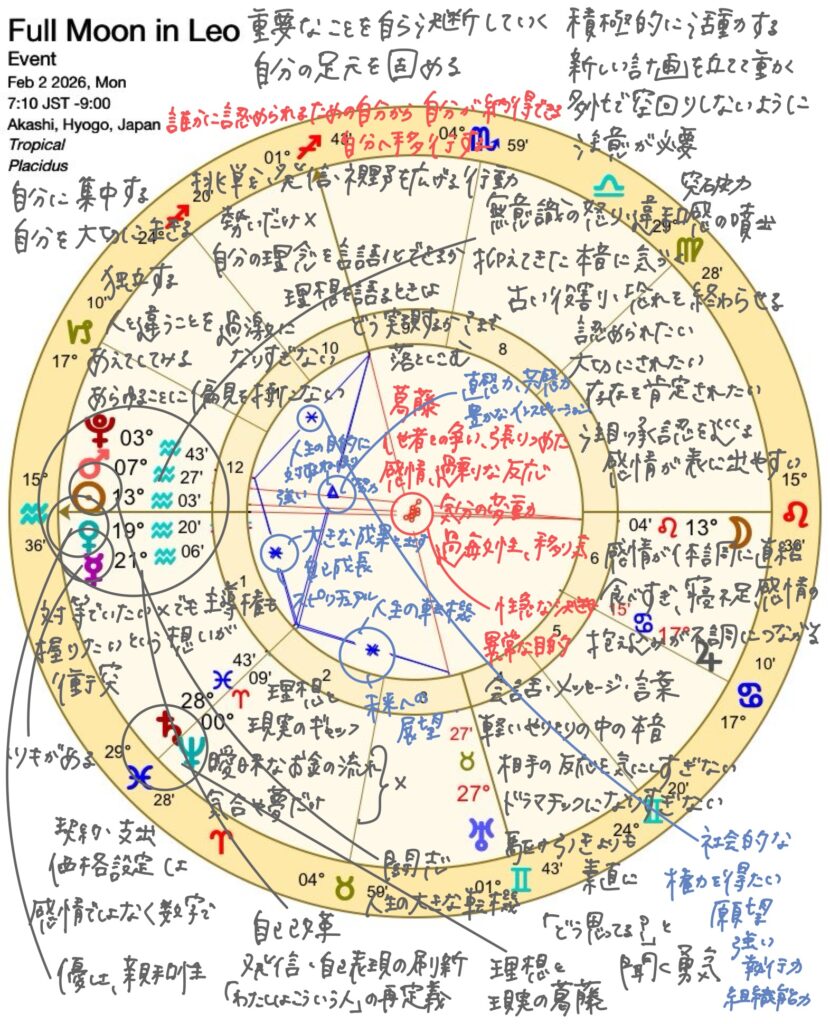 Full Moon in Leo
Event
Feb 2 2026, Mon
7:10 JST -9:00
Akashi, Hyogo, Japan
Tropical
Placidus
重要なことを自ら決断していく
自分の足元を固める
積極的に活動する
新しい計画を立てて動く
多忙で空回りしないように
注意が必要
誰かに認められるための自分から自分が納得できる
自分へ移行する
自分に集中する
自分を大切に生きる
独立する
人と違うことを過激に
あえてしてみる
なりすぎない
あらゆることに偏見を持たない
挑戦を発信・視野を広げる行動
勢いだけ×
自分の理念を言語化できるか
理想を語るときは
どう実験するかまで
落としこむ
突破力
無意識の怒り・違和感の噴出
抑えてきた本音に気づく
古い役割・恐れを終わらせる
認められたい
大切にされたい
存在を肯定されたい
注目・承認をめぐる
感情が表に出やすい
直感力、共感力
豊かなインスピレーション
葛藤
他者との争い、張りつめた
感情、過剰な反応
気分の変動
過毎女性、移り気
性急な決断
異常な目的
人生の目的に
強い
大きな成果を出す
自己成長
スピリチュアル
人生の転機
未来への
展望
感情が体調に直結
食べすぎ、寝不足、感情の
抱え込みが不調につながる
対等でいたい×でも主導権も
握りたいという想いが
衝突
理想と
現実のギャップ
曖昧なお金の流れ
気合や夢だけ
×
会話・メッセージ・言葉
軽いやりとりの中の本音
相手の反応を気にしすぎない
ドラマチックになりすぎない
駆けひきよりも
素直に
「どう思ってる?」と
聞く勇気
契約・支出
価格設定は
感情ではなく数字で
優しさ、親和性
自己改革
発信・自己表現の刷新
「わたしはこういう人」の再定義
人生の大きな転機
理想と
現実の葛藤
社会的な
権力を得たい
願望
強い
実行力
組織能力
01° 43'
04° 59'
29° 28'
24° 20'
17° 10'
15° 36'
03° 43'
07° 27'
13° 03'
19° 20'
21° 06'
04' 13°
15° 36'
15' 17°
17° 10'
28° 43'
00° 09'
29° 28'
04° 59'
27' 27°
01° 43'
24° 20'
10
8
12
6
1
5
2
3
4